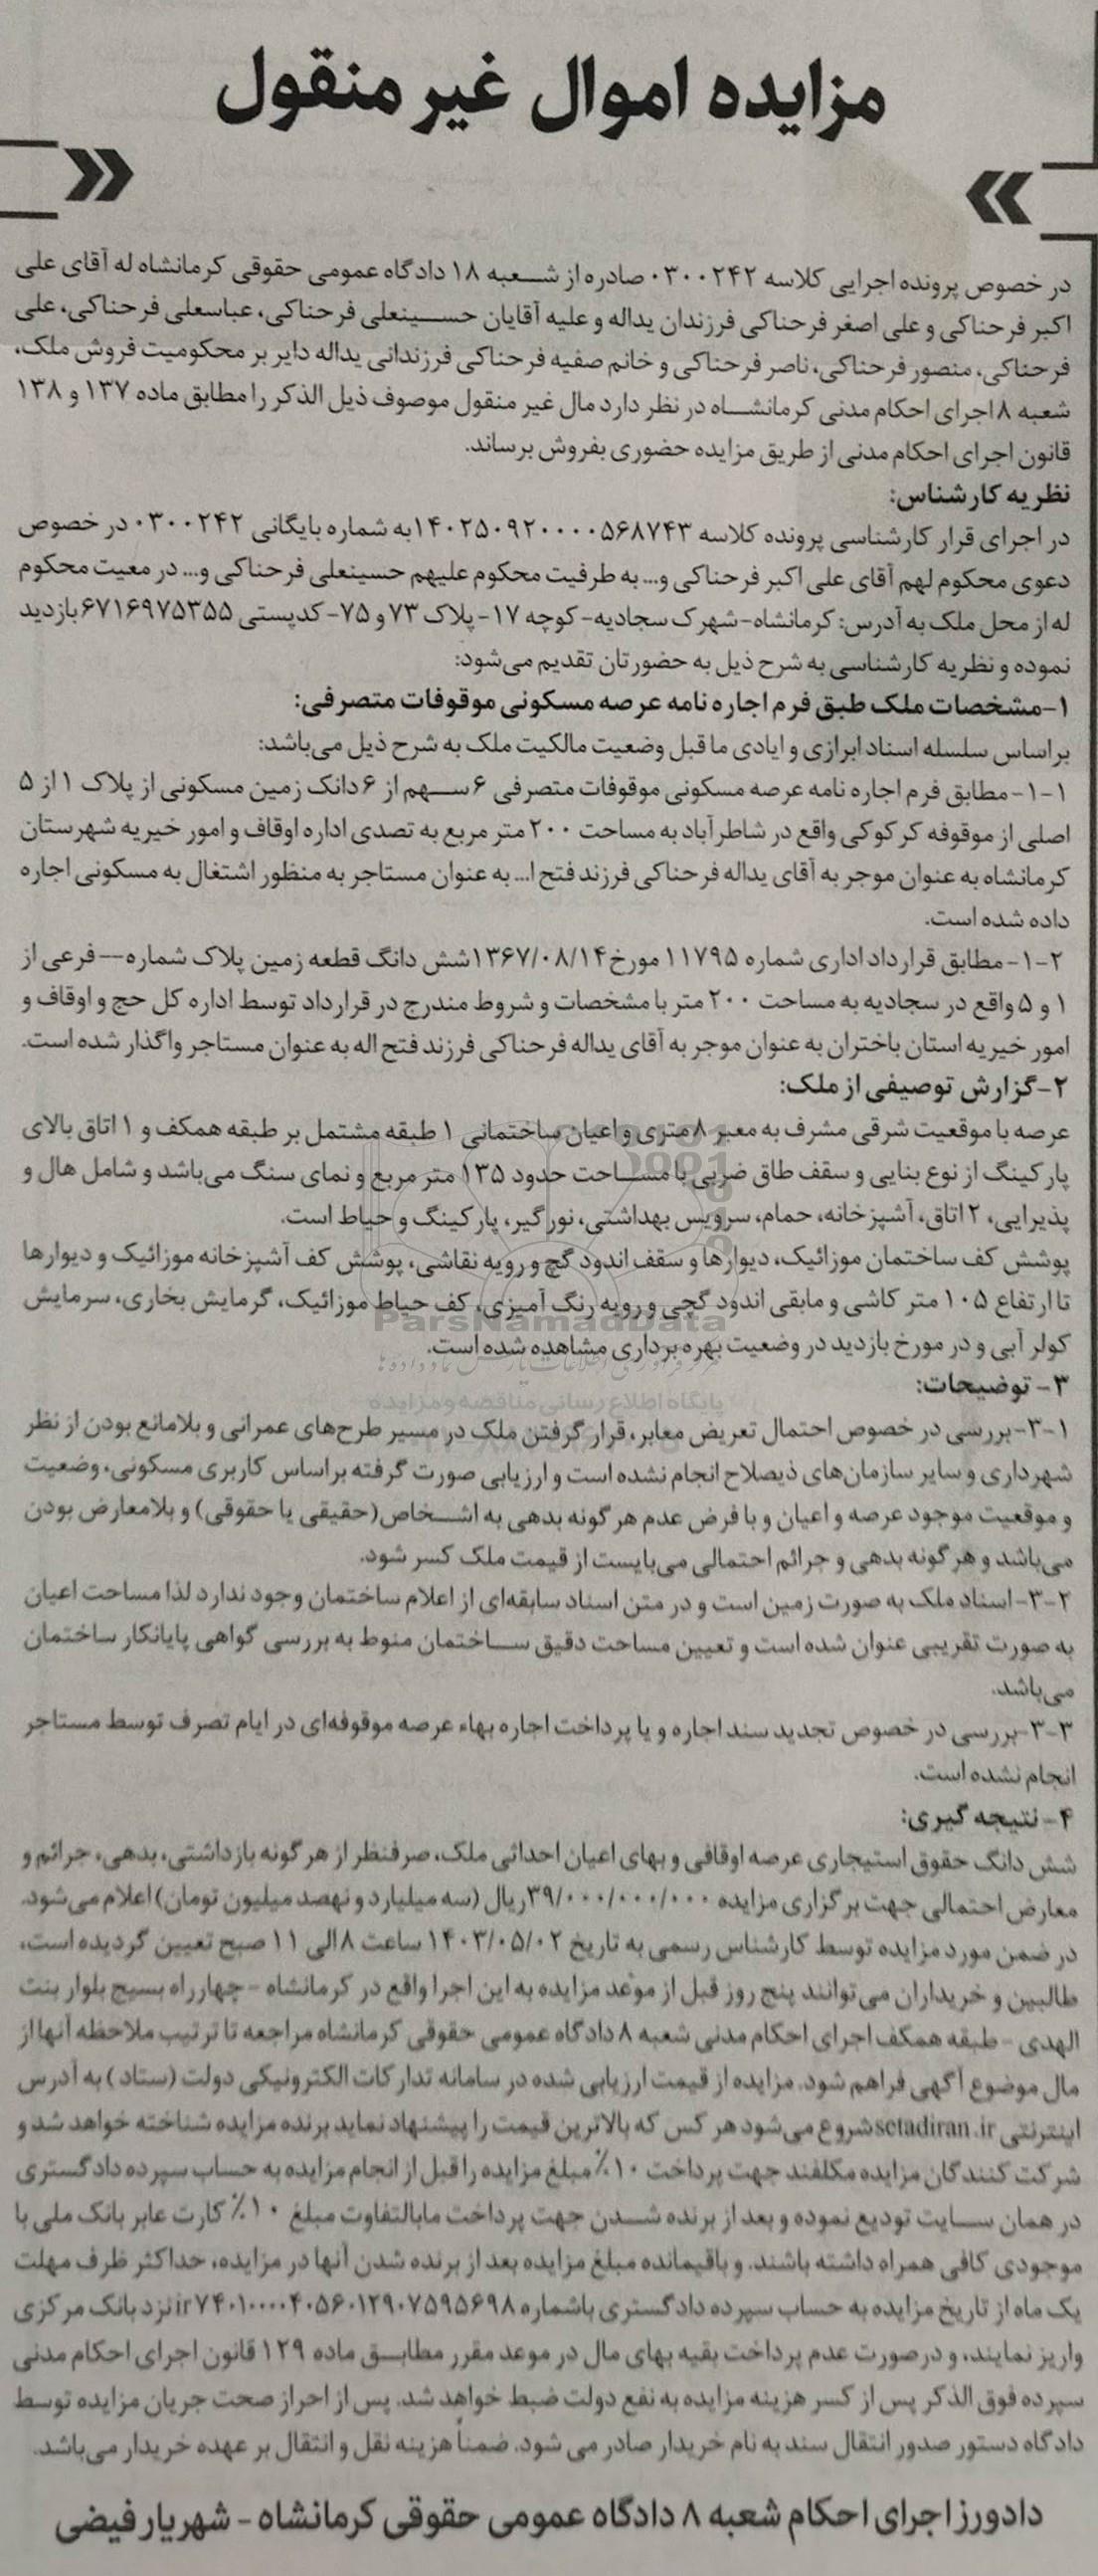 مزایده اموال غیر منقول
در خصوص پرونده اجرایی کلاسه ۰۳۰۰۲۴۲ صادره از شعبه ۱۸ دادگاه عمومی حقوقی کرمانشاه له آقای علی
اکبر فرحناکی و علی اصغر فرحناکی فرزندان یداله و علیه آقایان حسینعلی فرحناکی، عباسعلی فرحناکی، علی
فرحناکی، منصور فرحناکی، ناصر فرحناکی و خانم صفیه فرحناکی فرزندانی یداله دایر بر محکومیت فروش ملک،
شعبه ۸ اجرای احکام مدنی کرمانشاه در نظر دارد مال غیر منقول موصوف ذیل الذکر را مطابق ماده ۱۳۷ و ۱۳۸
قانون اجرای احکام مدنی از طریق مزایده حضوری بفروش برساند.
نظریه کارشناس:
در اجرای قرار کارشناسی پرونده کلاسه ۱۴۰۲۵۰۹۲۰۰۰۰۵۶۸۷۴۳ به شماره بایگانی ۰۳۰۰۲۴۲ در خصوص
دعوی محکوم لهم آقای علی اکبر فرحناکی و... به طرفیت محکوم علیهم حسینعلی فرحناکی و... در معیت محکوم
له از محل ملک به آدرس: کرمانشاه-شهرک سجادیه- کوچه ۱۷- پلاک ۷۳ و ۷۵- کدپستی ۶۷۱۶۹۷۵۳۵۵ بازدید
نموده و نظریه کارشناسی به شرح ذیل به حضورتان تقدیم می‌شود:
۱-مشخصات ملک طبق فرم اجاره نامه عرصه مسکونی موقوفات متصرفی:
براساس سلسله اسناد ابرازی و ایادی ماقبل وضعیت مالکیت ملک به شرح ذیل می‌باشد:
۱-۱- مطابق فرم اجاره نامه عرصه مسکونی موقوفات متصرفی ۶ سهم از ۶ دانک زمین مسکونی از پلاک ۱ از ۵
اصلی از موقوفه کرکوکی واقع در شاطرآباد به مساحت ۲۰۰ متر مربع به تصدی اداره اوقاف و امور خیریه شهرستان
کرمانشاه به عنوان موجر به آقای یداله فرحناکی فرزند فتح ا... به عنوان مستاجر به منظور اشتغال به مسکونی اجاره
داده شده است.
۱-۲- مطابق قرارداد اداری شماره ۱۱۷۹۵ مورخ ۱۳۶۷/۰۸/۱۴ شش دانگ قطعه زمین پلاک شماره --- فرعی از
۱ و ۵ واقع در سجادیه به مساحت ۲۰۰ متر با مشخصات و شروط مندرج در قرارداد توسط اداره کل حج و اوقاف و
امور خیریه استان باختران به عنوان موجر به آقای یداله فرحناکی فرزند فتح اله به عنوان مستاجر واگذار شده است.
۲-گزارش توصیفی از ملک:
عرصه با موقعیت شرقی مشرف به معبر ۸ متری و اعیان ساختمانی ۱ طبقه مشتمل بر طبقه همکف و ۱ اتاق بالای
پارکینگ از نوع بنایی و سقف طاق ضربی با مساحت حدود ۱۳۵ متر مربع و نمای سنگ می‌باشد و شامل هال و
پذیرایی، ۲ اتاق، آشپزخانه، حمام، سرویس بهداشتی، نورگیر، پارکینگ و حیاط است.
پوشش کف ساختمان موزائیک، دیوارها و سقف اندود گچ و رویه نقاشی، پوشش کف آشپزخانه موزائیک و دیوارها
تا ارتفاع ۱۰۵ متر کاشی و مابقی اندود گچی و رویه رنگ آمیزی، کف حیاط موزائیک، گرمایش بخاری، سرمایش
ParsNamadData
کولر آبی و در مورخ بازدید در وضعیت بهره برداری مشاهده شده است.
۳- توضیحات:
پایگاه اطلاع رسانی مناقصه و مزایده
۳-۱-بررسی در خصوص احتمال تعریض معابر، قرار گرفتن ملک در مسیر طرح‌های عمرانی و بلامانع بودن از نظر
شهرداری و سایر سازمان‌های ذیصلاح انجام نشده است و ارزیابی صورت گرفته براساس کاربری مسکونی، وضعیت
و موقعیت موجود عرصه و اعیان و با فرض عدم هر گونه بدهی به اشخاص (حقیقی یا حقوقی) و بلامعارض بودن
می‌باشد و هر گونه بدهی و جرائم احتمالی می‌بایست از قیمت ملک کسر شود.
۳-۲-اسناد ملک به صورت زمین است و در متن اسناد سابقه‌ای از اعلام ساختمان وجود ندارد لذا مساحت اعیان
به صورت تقریبی عنوان شده است و تعیین مساحت دقیق ساختمان منوط به بررسی گواهی پایانکار ساختمان
می‌باشد.
۳-۳-بررسی در خصوص تجدید سند اجاره و یا پرداخت اجاره بهاء عرصه موقوفه‌ای در ایام تصرف توسط مستاجر
انجام نشده است.
۴- نتیجه گیری:
شش دانگ حقوق استیجاری عرصه اوقافی و بهای اعیان احداثی ملک، صرفنظر از هر گونه بازداشتی، بدهی، جرائم و
معارض احتمالی جهت برگزاری مزایده ۳۹/۰۰۰/۰۰۰/۰۰۰ ریال (سه میلیارد و نهصد میلیون تومان) اعلام می‌شود.
در ضمن مورد مزایده توسط کارشناس رسمی به تاریخ ۱۴۰۳/۰۵/۰۲ ساعت ۸ الی ۱۱ صبح تعیین گردیده است،
طالبین و خریداران می‌توانند پنج روز قبل از موعد مزایده به این اجرا واقع در کرمانشاه - چهارراه بسیج بلوار بنت
الهدی - طبقه همکف اجرای احکام مدنی شعبه ۸ دادگاه عمومی حقوقی کرمانشاه مراجعه تا ترتیب ملاحظه آنها از
مال موضوع آگهی فراهم شود. مزایده از قیمت ارزیابی شده در سامانه تدارکات الکترونیکی دولت (ستاد) به آدرس
اینترنتی setadiran.ir شروع می‌شود هر کس که بالاترین قیمت را پیشنهاد نماید برنده مزایده شناخته خواهد شد و
شرکت کنندگان مزایده مکلفند جهت پرداخت ۱۰٪ مبلغ مزایده را قبل از انجام مزایده به حساب سپرده دادگستری
در همان سایت تودیع نموده و بعد از برنده شدن جهت پرداخت مابالتفاوت مبلغ ۱۰٪ کارت عابر بانک ملی با
موجودی کافی همراه داشته باشند. و باقیمانده مبلغ مزایده بعد از برنده شدن آنها در مزایده، حداکثر ظرف مهلت
یک ماه از تاریخ مزایده به حساب سپرده دادگستری باشماره ir۷۴۰۱۰۰۰۰۴۰۵۶۰۱۲۹۰۷۵۹۵۶۹۸ نزد بانک مرکزی
واریز نمایند، و درصورت عدم پرداخت بقیه بهای مال در موعد مقرر مطابق ماده ۱۲۹ قانون اجرای احکام مدنی
سپرده فوق الذکر پس از کسر هزینه مزایده به نفع دولت ضبط خواهد شد. پس از احراز صحت جریان مزایده توسط
دادگاه دستور صدور انتقال سند به نام خریدار صادر می شود. ضمناً هزینه نقل و انتقال بر عهده خریدار می‌باشد.
دادورز اجرای احکام شعبه ۸ دادگاه عمومی حقوقی کرمانشاه - شهریار فیضی